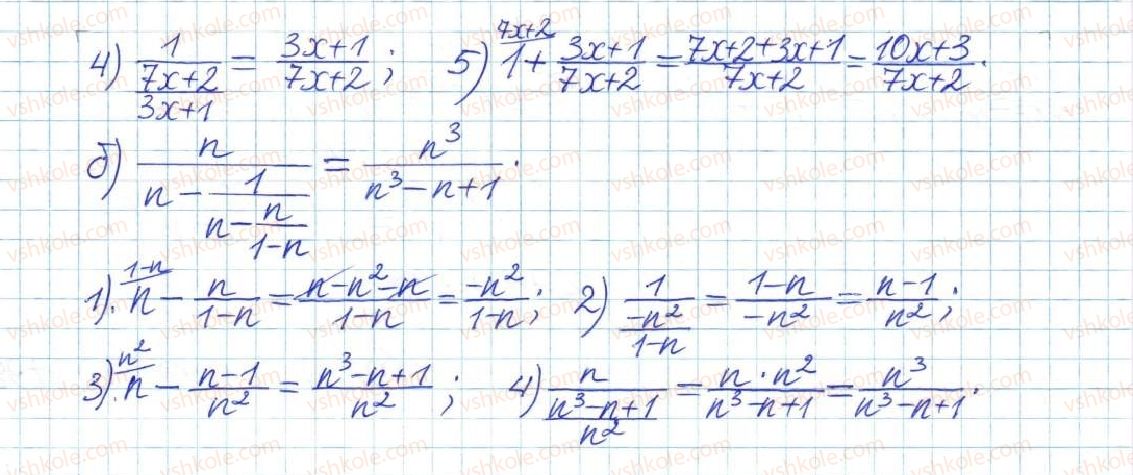 4) 1/((7x+2)/(3x+1)) = (3x+1)/(7x+2); 5) 1^(7x+2) + (3x+1)/(7x+2) = (7x+2+3x+1)/(7x+2) = (10x+3)/(7x+2).
б) n/(n - 1/(n - n/(1-n))) = n³/(n³-n+1).
1). n^(1-n) - n/(1-n) = (n-n²-n)/(1-n) = -n²/(1-n); 2) 1/(-n²/(1-n)) = (1-n)/(-n²) = (n-1)/n²;
3). n^(n²) - (n-1)/n² = (n³-n+1)/n²; 4) n/((n³-n+1)/n²) = (n·n²)/(n³-n+1) = n³/(n³-n+1).
vshkole.com